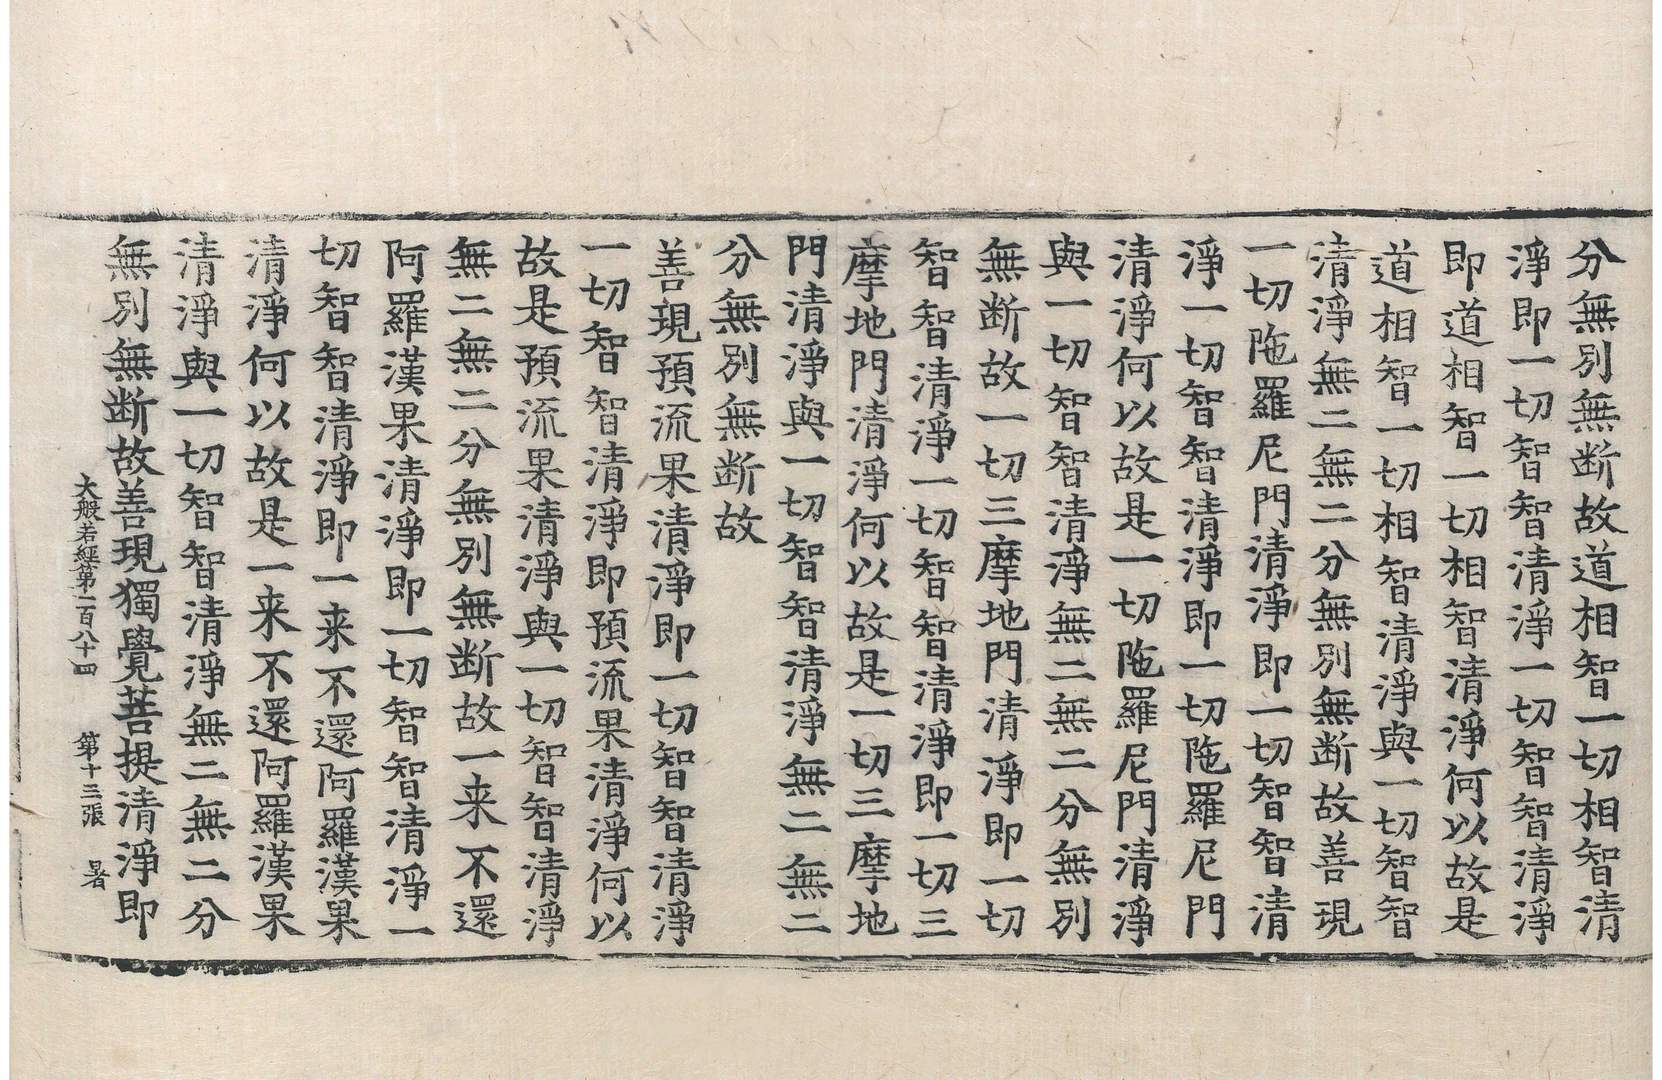 分無別無断故道相智一切相智清
淨即一切智智清淨一切智智清淨
即道相智一切相智清淨何以故是
道相智一切相智清淨與一切智智
清淨無二無二分無別無断故善現
一切陁羅尼門清淨即一切智智清
淨一切智智清淨即一切陁羅尼門
清淨何以故是一切陁羅尼門清淨
與一切智智清淨無二無二分無別
無断故一切三摩地門清淨即一切
智智清淨一切智智清淨即一切三
摩地門清淨何以故是一切三摩地
門清淨與一切智智清淨無二無二
分無別無断故
善現預流果清淨即一切智智清淨
一切智智清淨即預流果清淨何以
故是預流果清淨與一切智智清淨
無二無二分無別無断故一来不還
阿羅漢果清淨即一切智智清淨一
切智智清淨即一来不還阿羅漢果
清淨何以故是一来不還阿羅漢果
清淨與一切智智清淨無二無二分
無別無断故善現獨覺菩提清淨即
大般若經第一百八十四 第十三張 暑